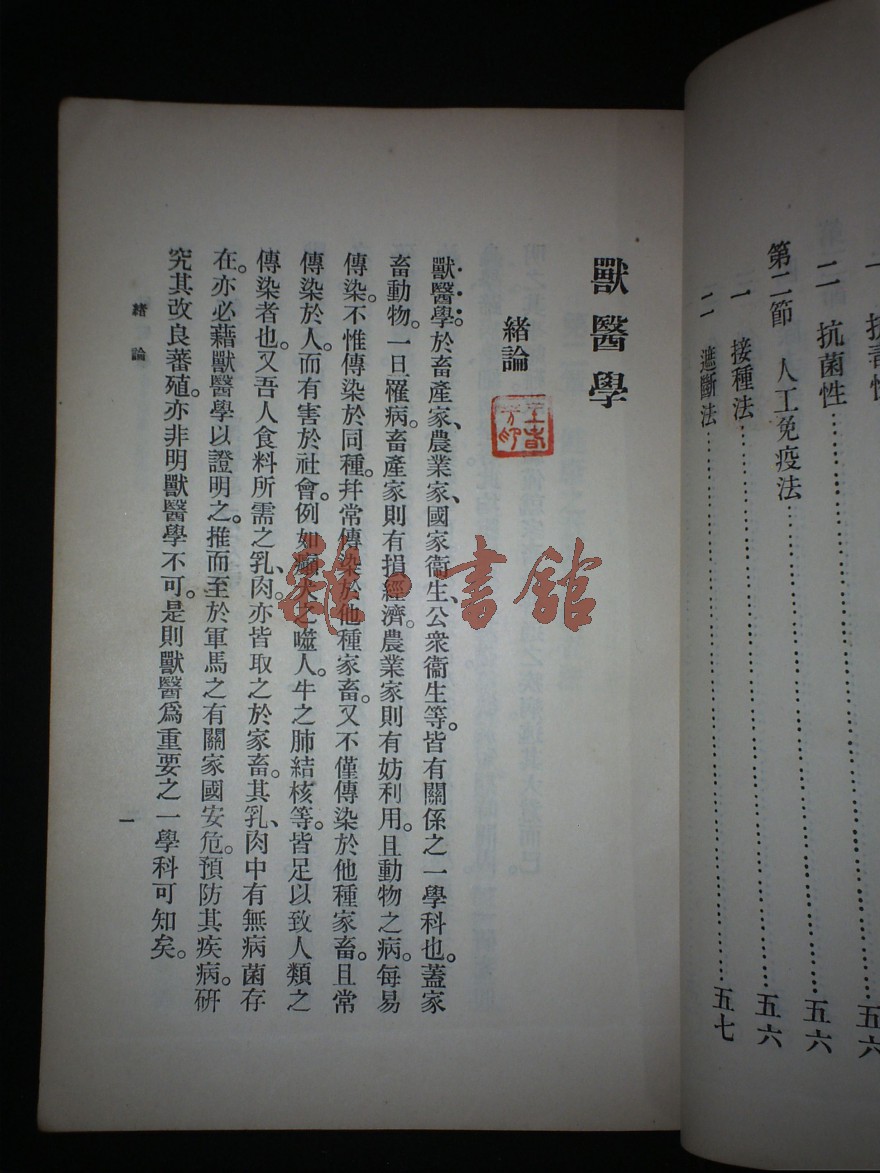 一 抗毒性……五六
二 抗菌性……五六
第二節 人工免疫法……五六
一 接種法……五六
二 遮斷法……五七
獸醫學
緒論
獸醫學。於畜產家、農業家、國家衞生、公衆衞生等。皆有關係之一學科也。蓋家
畜動物。一日罹病。畜產家則有損經濟。農業家則有妨利用。且動物之病。每易
傳染。不惟傳染於同種。幷常傳染於他種家畜。又不僅傳染於他種家畜。且常
傳染於人。而有害於社會。例如癲犬之噬人。牛之肺結核等。皆足以致人類之
傳染者也。又吾人食料所需之乳、肉。亦皆取之於家畜。其乳、肉中有無病菌存
在。亦必藉獸醫學以證明之。推而至於軍馬之有關家國安危。預防其疾病。研
究其改良蕃殖。亦非明獸醫學不可。是則獸醫爲重要之一學科可知矣。
緒論
一
雜·書館